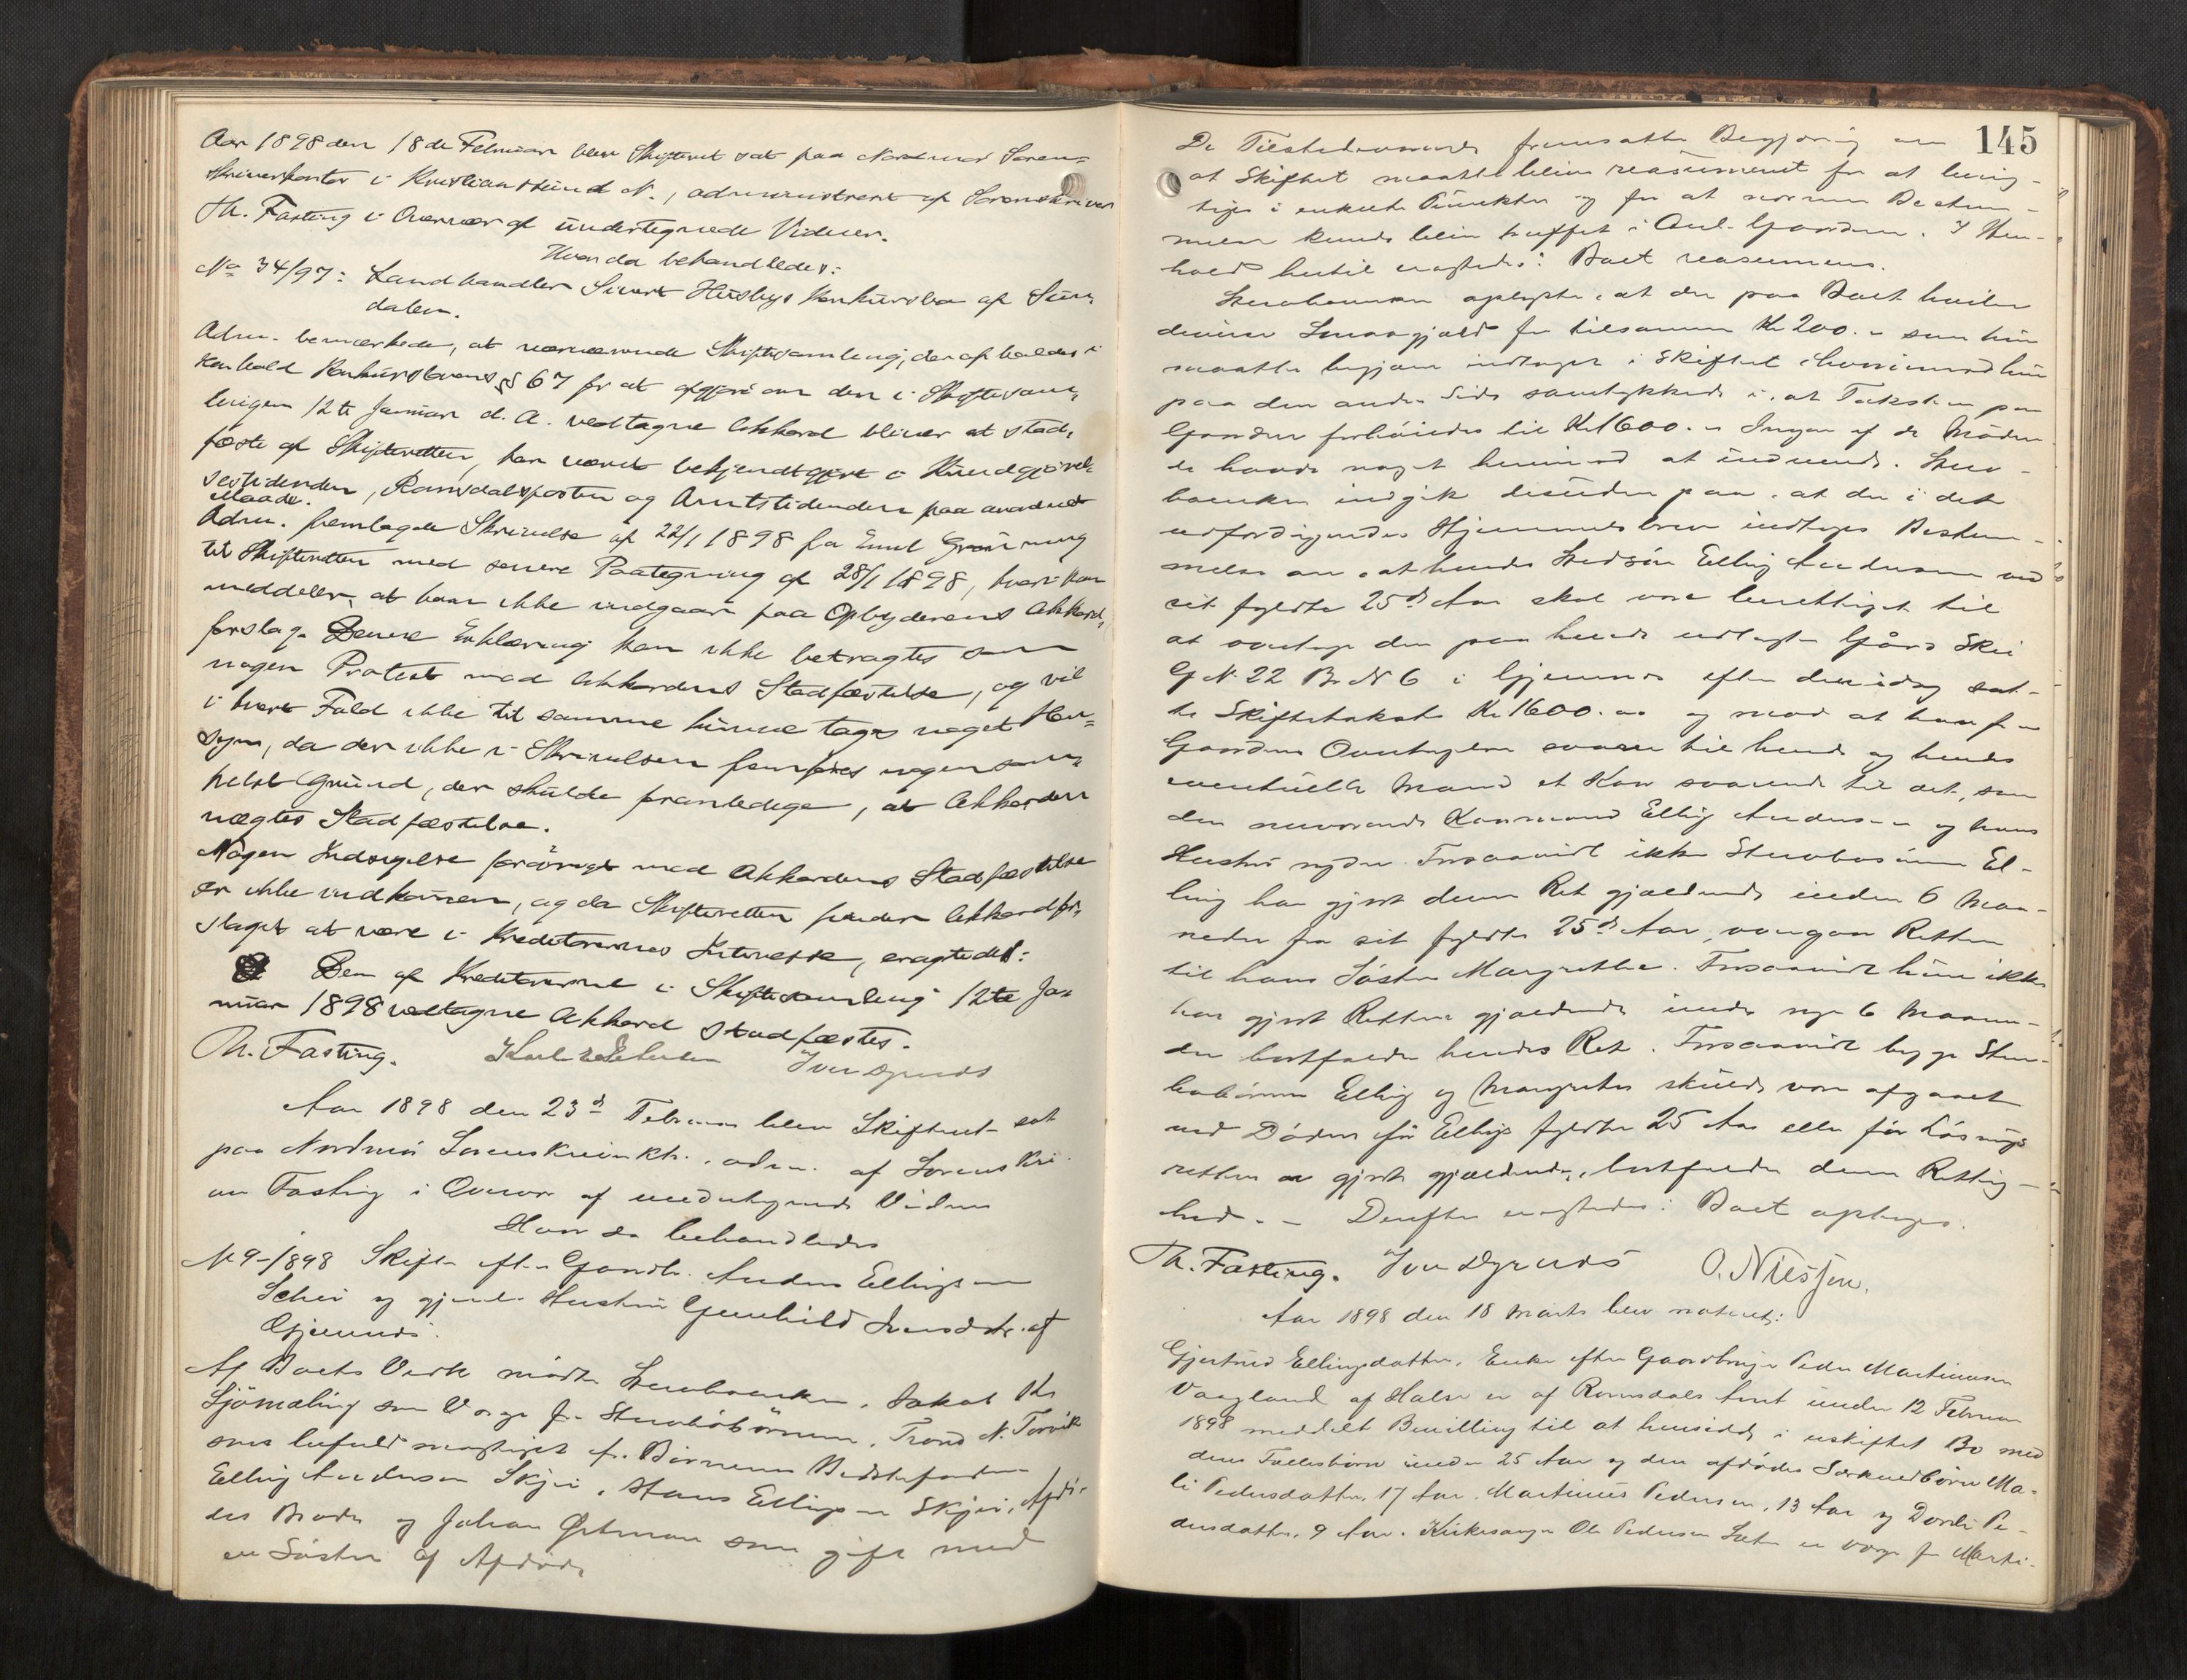 Aar 1898 den 18de Februar blev Skifteret sat paa Nordmør Soren-
skriverkontor i Kristianssund N., administreret af Sorenskriver
Th. Fasting i Overvær af undertegnede Vidner.
Hvor da behandledes:
No 34/97: Landhandler Sivert Husbys Konkursbo af Surn-
dalen.
Adm. bemærkede, at nærværende Skiftesamling, der afholdes i
Henhold Konkurslovens § 67 for at afgjøre om den i Skiftesam-
lingen 12te Januar d. A. vedtagne Akkord bliver at stad-
fæste af Skifteretten, har været bekjendtgjort i Kundgjørel-
sestidenden, Romsdalsposten og Amtstidenden paa anordnet
Maade.
Adm. fremlagde Skrivelse af 22/1 1898 fra Emil Grønning
til Skifteretten med senere Paategning af 28/1 1898, hvori han
meddeler, at han ikke indgaar paa Opbyderens Akkord-
forslag. Denne Erklæring kan ikke betragtes som
nogen Protest mod Akkordens Stadfæstelse, og vil
i hvert Fald ikke til samme kunne tages noget Hen-
syn, da der ikke i Skrivelsen fremføres nogensom-
helst Grund, der skulde foranledige, at Akkorden
nægtes Stadfæstelse.
Nogen Indsigelse forøvrigt mod Akkordens Stadfæstelse
er ikke indkommen, og da Skifteretten finder Akkordfor-
slaget at være i Kreditorernes Interesse, eragtedes:
Den af Kreditorerne i Skiftesamling 12te Ja-
nuar 1898 vedtagne Akkord stadfæstes.
Th. Fasting. Iver Dyrnes
Aar 1898 den 23d Februar blev Skifteret sat
paa Nordmør Sorenskriverktr., adm. af Sorenskri-
ver Fasting i Overvær af undertegnede Vidner
Hvor da behandledes
No 9-1898 Skifte efter Gaardbr. Anders Ellingsen
Schei og gjenl. Hustru Gunhild Iversdtr. af
Gjemnes.
Af Boets Vedk. mødte Stervboenken, Jakob Kr.
Sjömæling som Værge for Stervbobörnene, Trond N. Torvik
som befuldmægtiget for Børnenes Bedstefader
Elling Andersen Skjei, Hans Ellingsen Skjei, Afdö-
des Broder og Johan Ørtman som gift med
en Søster af Afdøde
145
De Tilstedeværende fremsatte Begjæring om
at Skiftet maatte blive reasumeret for at berig-
tiges i enkelte Punkter og for at nærmere Bestem-
melse kunde blive truffet i Anl. Gaarden. I Hen-
hold hertil eragtedes: Boet reasumeres.
Stervboenken oplyste, at der paa Boet hviler
diverse Smaagjæld for tilsammen Kr 200.- som hun
maatte begjære indtaget i Skiftet, hvorimod hun
paa den anden Side samtykkede i, at Taksten paa
Gaarden forhöiedes til Kr 1600.- Ingen af de Möden-
de havde noget herimod at indvende. Sterv-
boenken indgik desuden paa, at der i det
udfærdigendes Hjemmelsbrev indtages Bestem-
melse om, at hendes Stedsön Elling Andersen ved
sit fyldte 25de Aar skal være berettiget til
at overtage den paa hende udlagte Gård Skei
G.N. 22 B.N 6 i Gjemnes efter den idag sat-
te Skiftetakst Kr 1600.00 og mod at han fra
Gaardens Overtagelse svarer til hende og hendes
eventuelle Mand et Kaar svarende til det, som
den nuværende Kaarmand Elling Andersen og hans
Hustru nyder. Forsaavidt ikke Stervbosønnen El-
ling har gjort denne Ret gjældende inden 6 Maa-
neder fra sit fyldte 25de Aar, overgaar Retten
til hans Søster Margrethe. Forsaavidt hun ikke
har gjort Retten gjældende inden nye 6 Maane-
der bortfalder hendes Ret. Forsaavidt begge Sterv-
bobörnene Elling og Margrethe skulde være afgaaet
ved Döden för Ellings fyldte 25 Aar eller för Lösnings-
retten er gjort gjældende, bortfalder denne Rettig-
hed. - Derefter eragtedes: Boet optages.
Th. Fasting. Iver Dyrnes O. Nilssen.
Aar 1898 den 18 Marts blev noteret:
Gjertrud Ellingsdatter, Enke efter Gaardbruger Peder Martinusen
Vaagland af Halse er af Romsdals Amt under 12 Februar
1898 meddelt Bevilling til at hensidde i uskiftet Bo med
deres Fællesbørn under 25 Aar og den afdødes Særkuldbörn Ma-
li Pedersdatter, 17 Aar, Martinus Pedersen, 13 Aar og Dordi Pe-
dersdatter, 9 Aar. Kirkesanger Ole Pedersen Sæter er Værge for Marti-